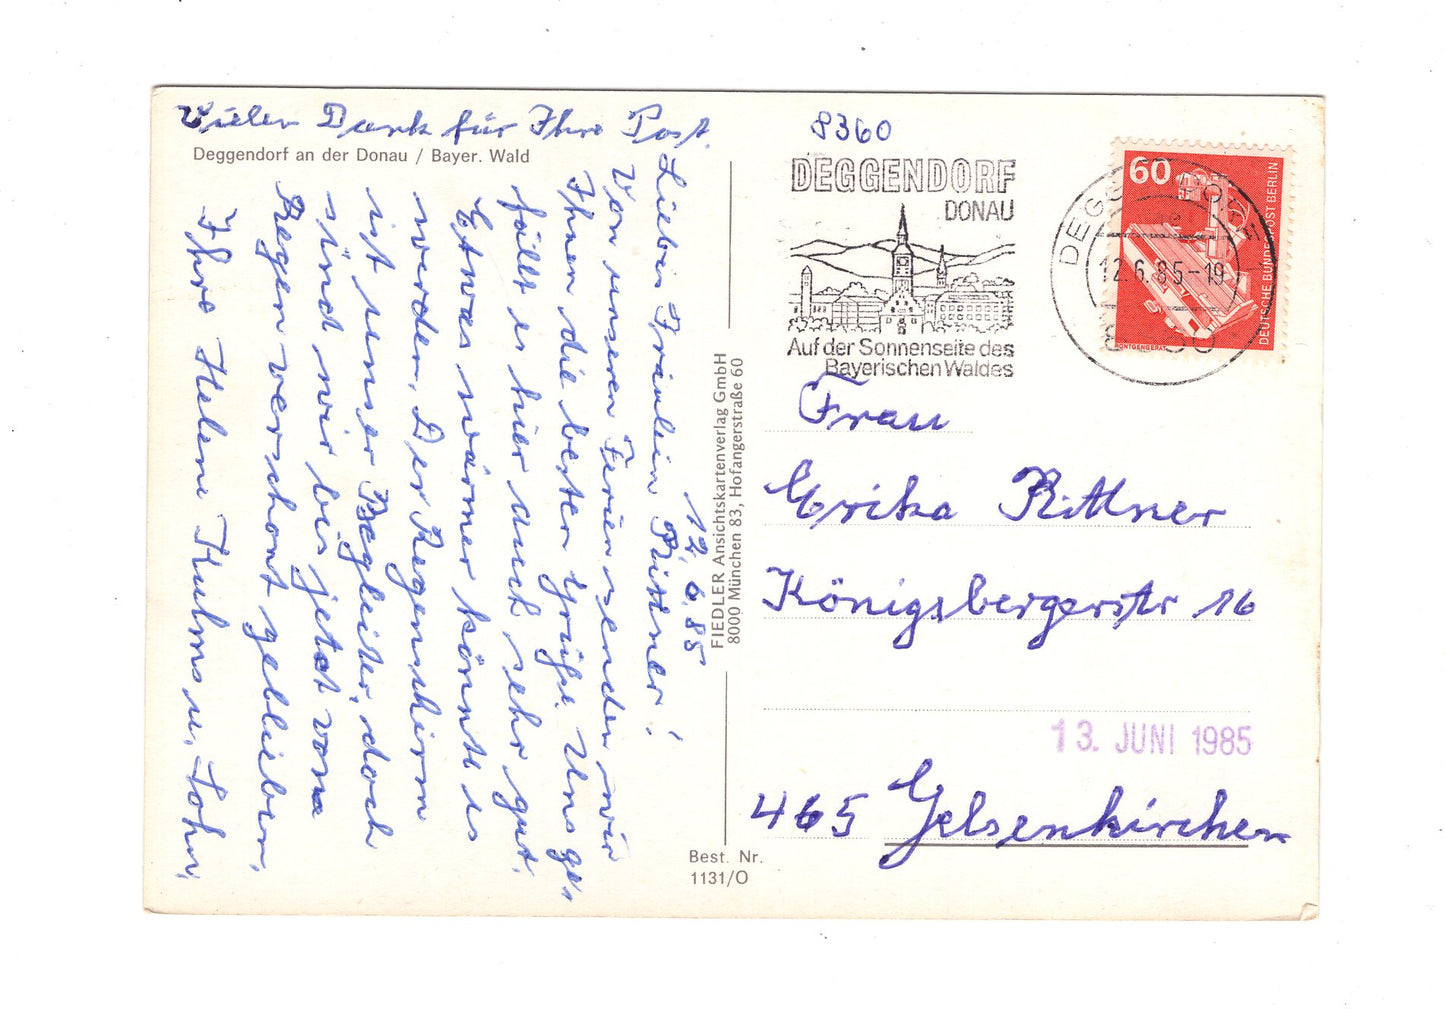 Vielen Dank für Ihre Post.
Deggendorf an der Donau / Bayer. Wald
12.6.85
Liebes Fräulein Rittner!
Von unseren Ferien senden wir
Ihnen die besten Grüße. Uns ge-
fällt es hier auch sehr gut.
Etwas wärmer könnte es
werden. Der Regenschirm
ist unser Begleiter, doch
sind wir bis jetzt vom
Regen verschont geblieben.
Ihre Helene Kulms u. Sohn.
FIEDLER Ansichtskartenverlag GmbH
8000 München 83, Hofangerstraße 60
Best. Nr.
1131/O
8360
DEGGENDORF
DONAU
Auf der Sonnenseite des
Bayerischen Waldes
12.6.85-19
60
DEUTSCHE BUNDESPOST BERLIN
RÖNTGENGERÄT
Frau
Erika Rittner
Königsbergerstr 16
13. JUNI 1985
465 Gelsenkirchen